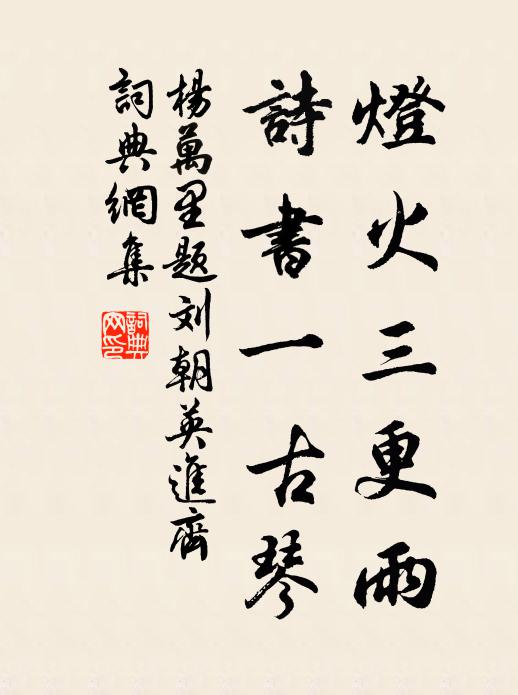 燈火三更雨
詩書一古琴
楊萬里题刘朝英進齋
詞典網集
詞典網印